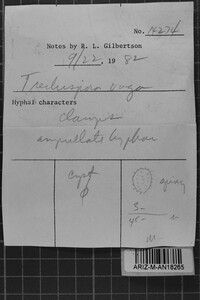 No. 14274
Notes by R. L. Gilbertson
9/22, 1982
Trechispora vaga
Hyphal characters
clamps
ampullate hyphae
cyst
φ
spiny
3-
4.5-
ARIZ-M-AN18265